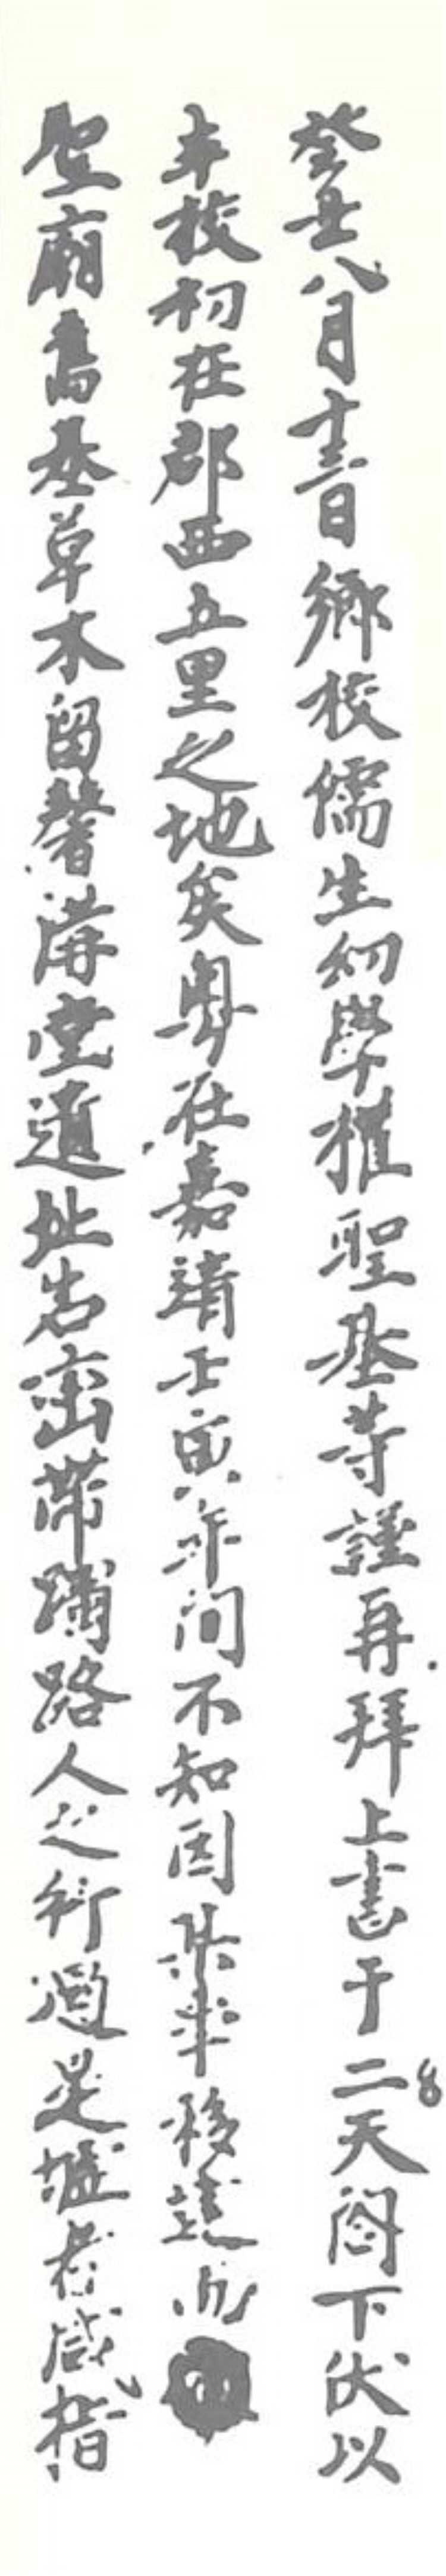 癸丑八月十三日鄕校儒生幼學權聖基等謹再拜上書于二天閤下伏以
本校初在郡西五里之地矣粤在嘉靖壬寅年间不知因某事移建而
聖廟舊基草木留馨講堂遺址岩巒帶 路人之行過是墟者咸指